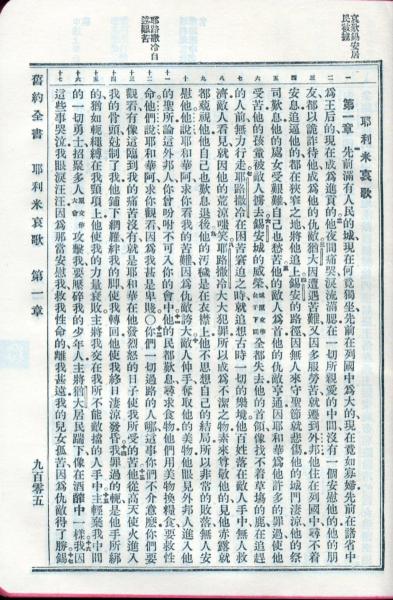 哀歎錫安居民被擄
耶路撒冷自述艱苦
耶利米哀歌
第一章 先前滿有人民的城現在何竟獨坐先前在列國中爲大的現在竟如寡婦先前在諸省中
爲王后的現在成爲進貢的他夜間痛哭淚流滿腮在一切所親愛的中間沒有一個安慰他的他的朋
友都以詭詐待他成爲他的仇敵猶大因遭遇苦難又因多服勞苦就遷到外邦他住在列國中尋不着
安息追逼他的都在狹窄之地將他追上錫安的路徑因無人來守聖節就悲傷他的城門淒涼他的祭
司歎息他的處女受艱難自己也愁苦他的敵人爲首他的仇敵亨通因耶和華爲他許多的罪過使他
受苦他的孩童被敵人擄去錫安城的威榮城原文作女子下同全都失去他的首領像找不着草場的鹿在追趕
的人前無力行走耶路撒冷在困苦窘迫之時就追想古時一切的樂境他百姓落在敵人手中無人救
濟敵人看見就因他的荒涼嗤笑耶路撒冷大大犯罪所以成爲不潔之物素來尊敬他的見他赤露就
都藐視他他自己也歎息退後他的汚穢是在衣襟上他不思想自己的結局所以非常的敗落無人安
慰他他說耶和華阿求你看我的苦難因爲仇敵誇大敵人伸手奪取他的美物他眼見外邦人進入他
的聖所論這外邦人你曾吩咐不可入你的會中他的民都歎息尋求食物他們用美物換糧食要救性
命他們說耶和華阿求你觀看因爲我甚是卑賤○你們一切過路的人哪這事你們不介意麼你們要
觀看有像這臨到我的痛苦沒有就是耶和華在他發烈怒的日子使我所受的苦他從高天使火進入
我的骨頭尅制了我他鋪下網羅絆我的腳使我轉回他使我終日淒涼發昏我罪過的軛是他手所綁
的猶如軛繩縛在我頸項上他使我的力量衰敗主將我交在我所不能敵擋的人手中主輕棄我中間
的一切勇士招聚多人原文作大會攻擊我要壓碎我的少年人主將猶大居民踹下像在酒醡中一樣我因
這些事哭泣我眼淚汪汪因爲那當安慰我救我性命的離我甚遠我的兒女孤苦因爲仇敵得了勝錫
舊約全書 耶利米哀歌 第一章
九百零五